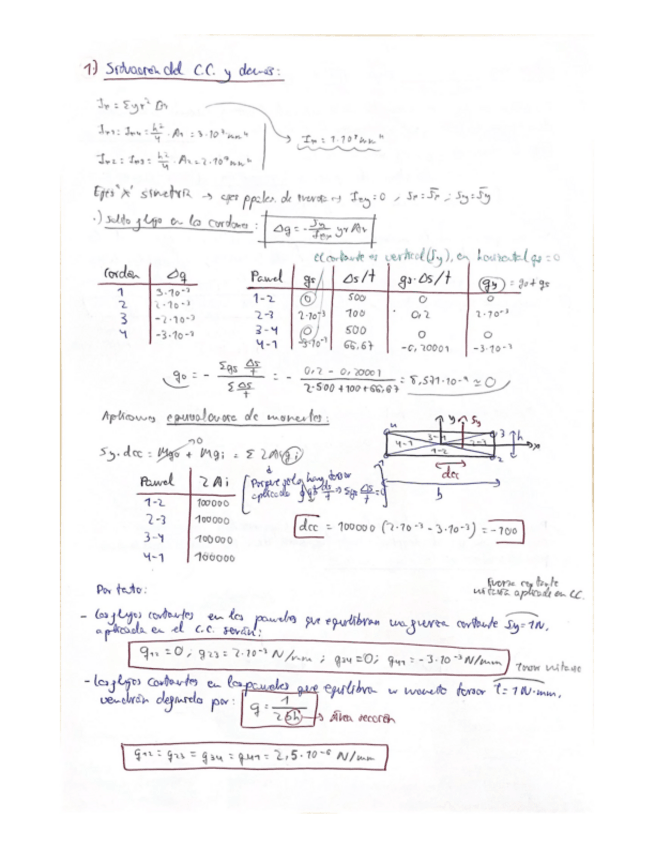 1) Situación del C.C. y demás:
Ix = Σyr² Ar
Ix1 = Ix4 = h²/4 · A1 = 3·10⁷ mm⁴
Ix2 = Ix3 = h²/4 · A2 = 2·10⁷ mm⁴
Ix = 1·10⁸ mm⁴
Eje "x" simetría → ejes ppales. de inercia → Ixy = 0 , Sx = S̄x ; Sy = S̄y
·) Salto flujo en los cordones: Δq = - Sy/Ixx yr Ar
el cortante es vertical (Sy), en horizontal qs = 0
Cordón Δq
1 3·10⁻³
2 2·10⁻³
3 -2·10⁻³
4 -3·10⁻³
Panel qs Δs/t qs·Δs/t qs = qs + q0
1-2 0 500 0 0
2-3 2·10⁻³ 100 0,2 2·10⁻³
3-4 0 500 0 0
4-1 -3·10⁻³ 66,67 -0,20001 -3·10⁻³
q0 = - Σqs Δs/t / Σ Δs/t = - 0,2 - 0,20001 / 2·500 + 100 + 66,67 = 8,571·10⁻⁹ ≃ 0
Aplicamos equivalencia de momentos:
Sy·dcc = Mq0 + Mqi = Σ 2Ai qi
Panel 2Ai
1-2 100000
2-3 100000
3-4 100000
4-1 100000
4 y Sy 3
4-1 3-4 2-3 x h
1-2
1 dcc 2
b
dcc = 100000 (2·10⁻³ - 3·10⁻³) = -100
Por tanto:
fuerza cortante
unitaria aplicada en CC.
- Los flujos cortantes en los paneles que equilibran una fuerza cortante Sy = 1N,
aplicada en el C.C. serán:
q12 = 0 ; q23 = 2·10⁻³ N/mm ; q34 = 0 ; q41 = -3·10⁻³ N/mm
Torsor unitario
- Los flujos cortantes en los paneles que equilibran un momento torsor T = 1 N·mm,
vendrán dados por: q = 1/2Sh → área sección
q12 = q23 = q34 = q41 = 2,5·10⁻⁶ N/mm